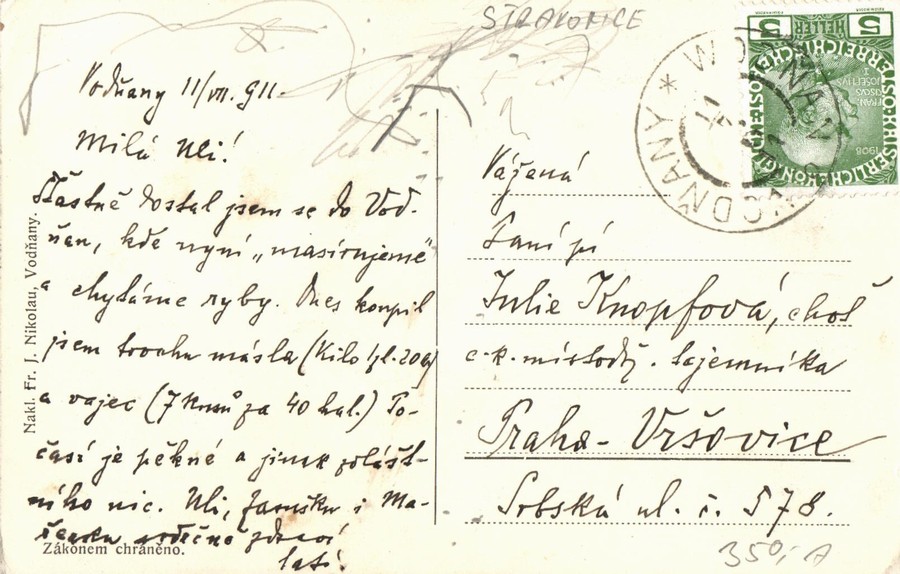 STRAKONICE
Vodňany 11/VII. 911.
Milá Uli!
Šťastně dostal jsem se do Vod-
ňan, kde nyní „masírujeme"
a chytáme ryby. Dnes koupil
jsem trochu másla (Kilo 1 zl. 20
a vajec (7 kusů za 40 hal.) Po-
časí je pěkné a jinak zvlášt-
ního nic. Uli, Jarušku i Ma-
srdečně zdraví
Nakl. Fr. J. Nikolau, Vodňany.
Zákonem chráněno.
Vážená
Paní pí
Julie Knopfová, choť
c. k. místodrž. tajemníka
Praha - Vršovice
Srbská ul. č. 578.
VODŇANY * WODNIAN
5 HELLER 5
KAISERLICHE KÖNIGLICHE ÖSTERREICHISCHE POST
1908